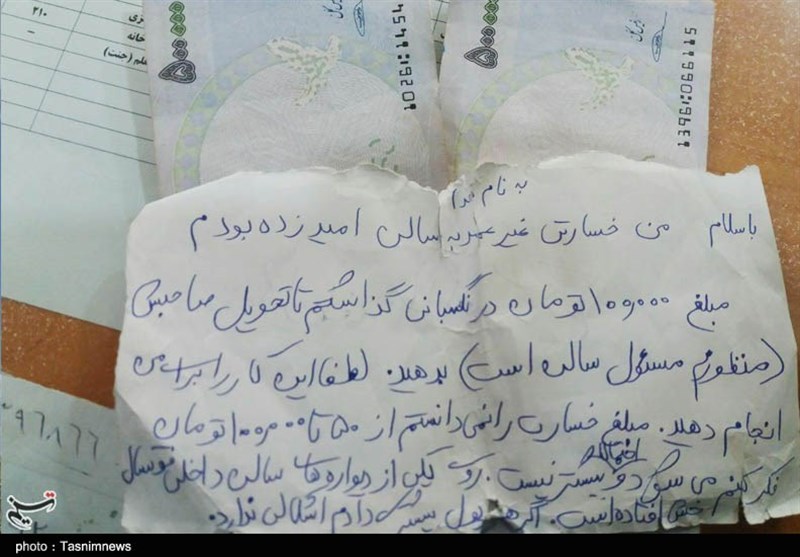 ۳۱۰
خانه
علم (جنت)
۵۰۰۰۰۰
۵۰۰۰۰۰
به نام خدا
باسلام من خسارتی غیر عمد به سالن امید زده بودم
مبلغ ۱۰۰,۰۰۰ تومان در نگهبانی گذاشتم تا تحویل صاحبش
(منظورم مسئول سالن است) بدهید. لطفا این کار را برای من
انجام دهید. مبلغ خسارت را نمی‌دانستم از ۵۰ تا ۱۰۰,۰۰۰ تومان
فکر کنم می شود و بیشتر نیست. روی یکی از دیواره های سالن داخلی فوتسال
خش افتاده است. اگر هم پول بیشتر دادم اشکالی ندارد.
۹۶۸۶۶
تسنیم
photo : Tasnimnews